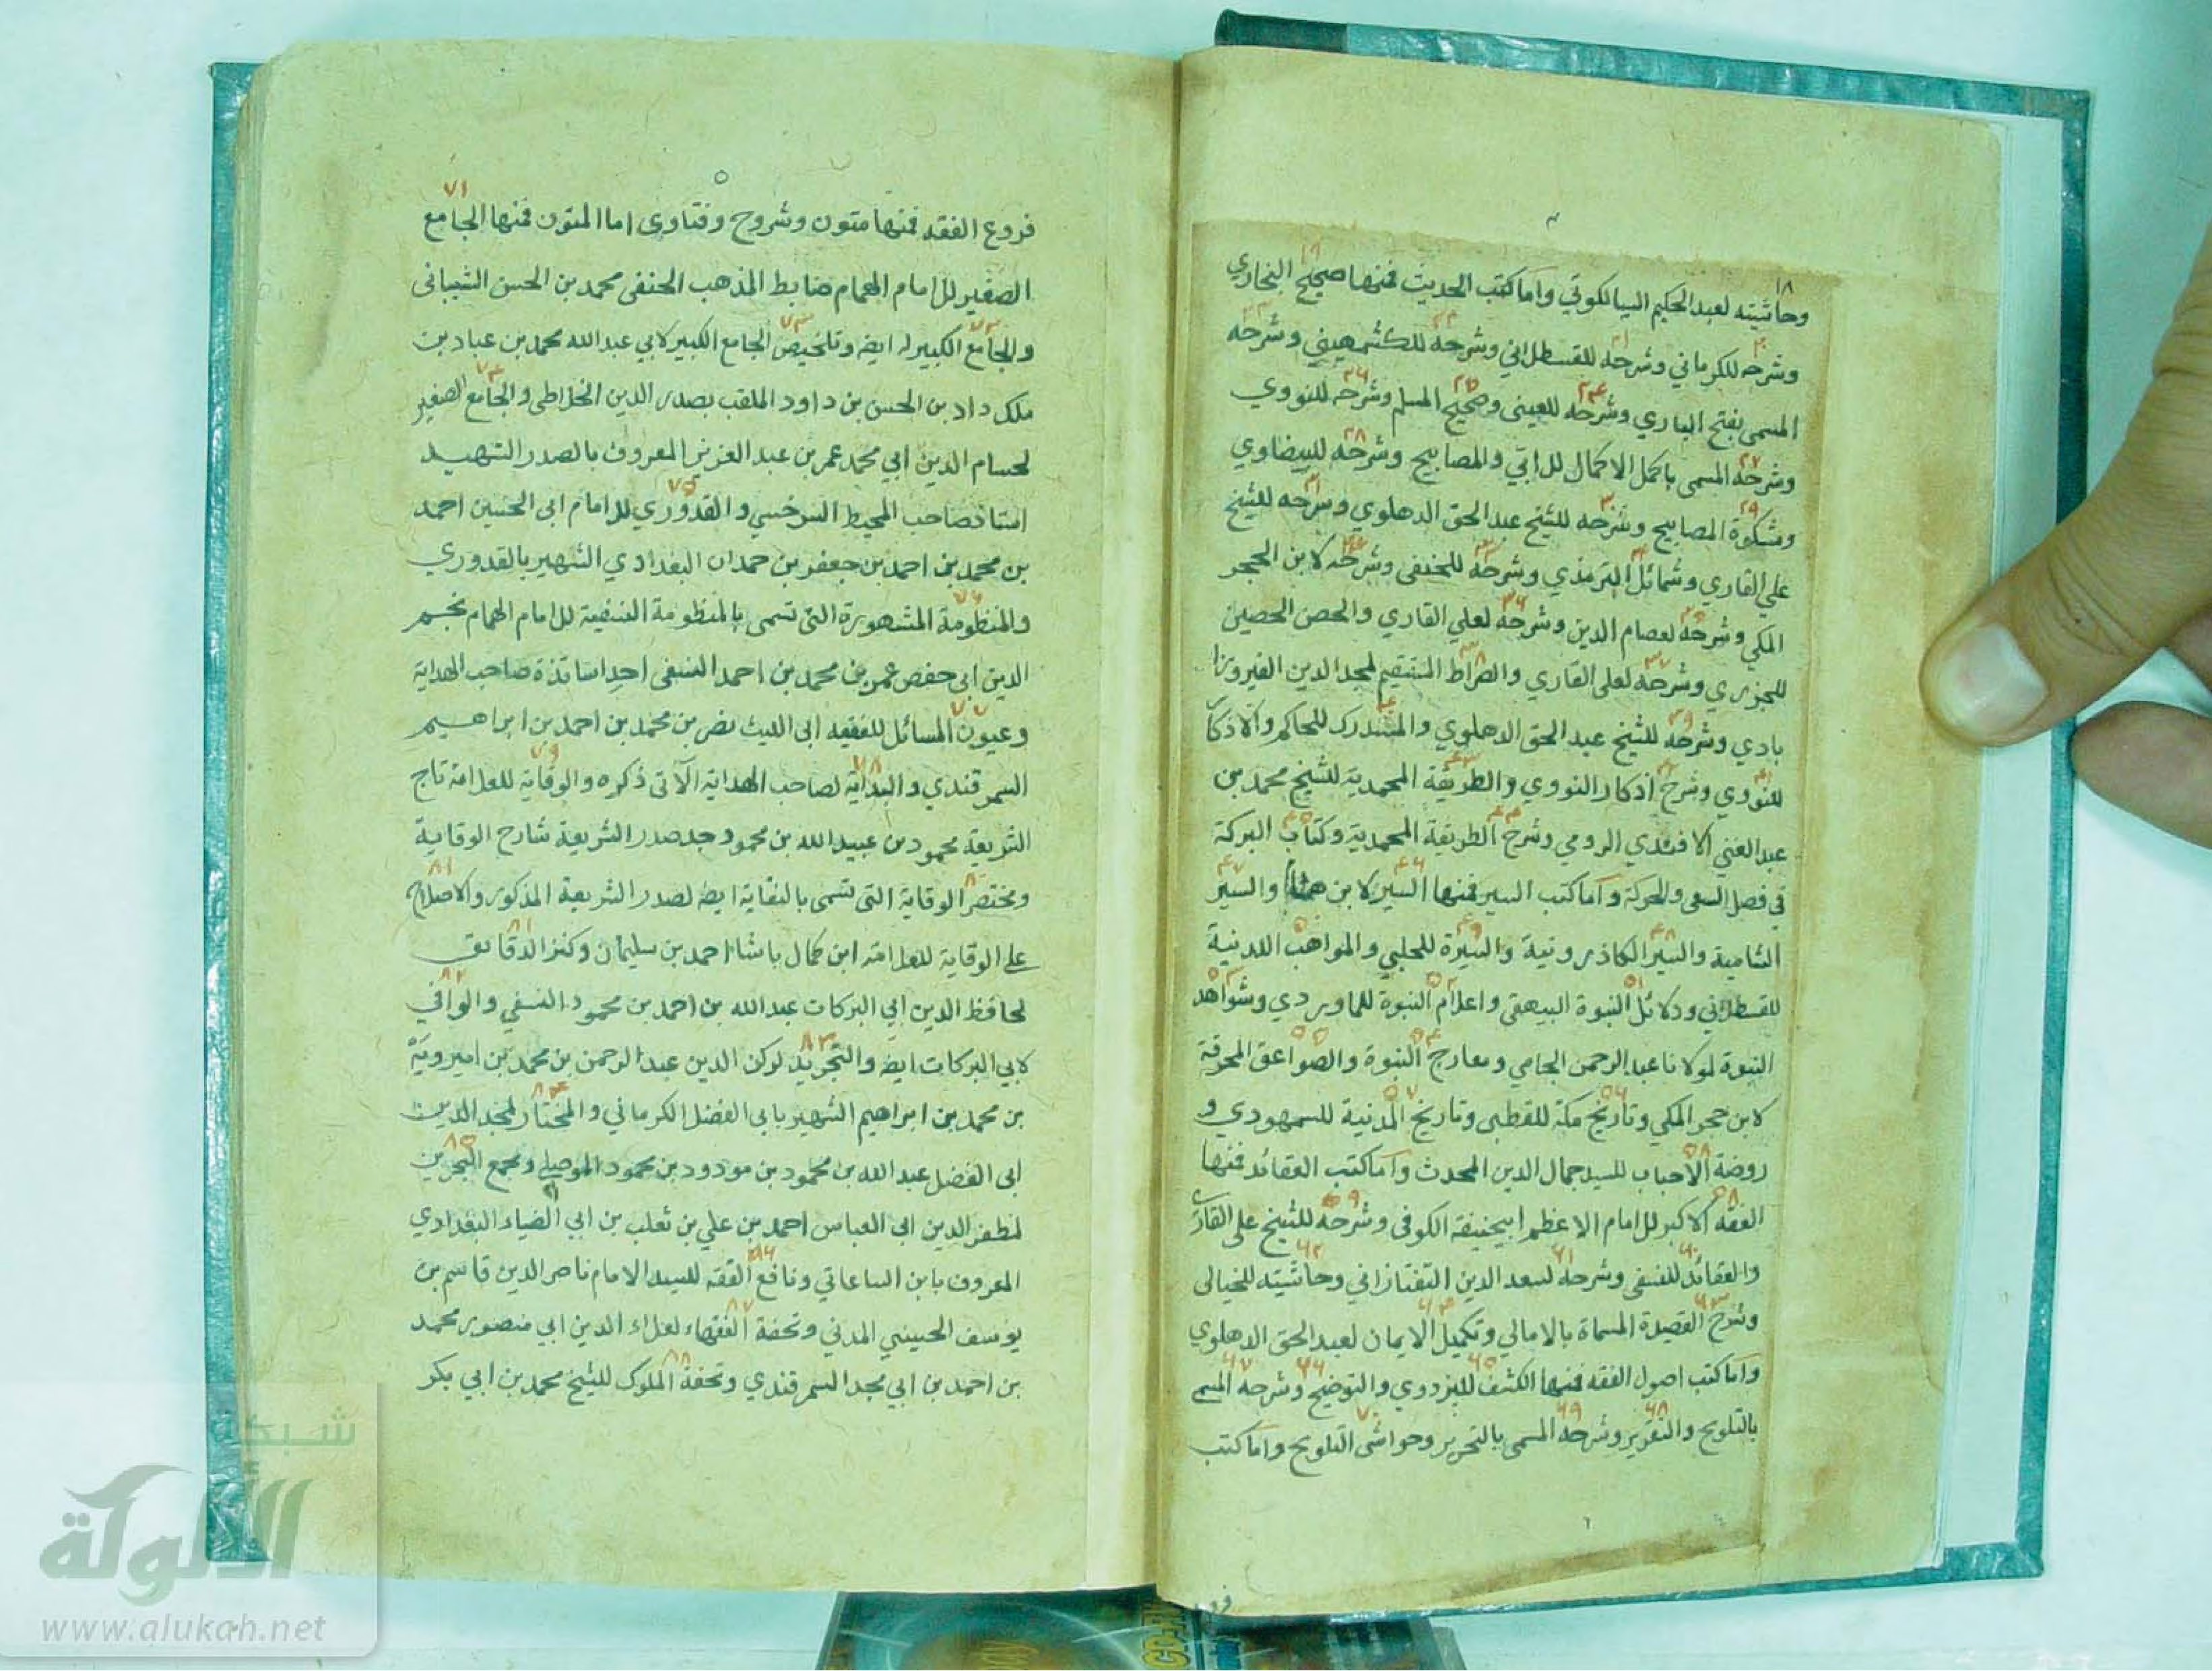 وحاشيته لعبد الحكيم السيالكوتي واما كتب الحديث فمنها صحيح البخاري
وشرحه للكرماني وشرحه للقسطلاني وشرحه للكشمهيني وشرحه
المسمى بفتح الباري وشرحه للعيني وصحيح المسلم وشرحه للنووي
وشرحه المسمى باكمل الاكمال للاتي والمصابيح وشرحه للبيضاوي
ومشكوة المصابيح وشرحه للشيخ عبد الحق الدهلوي وشرحه للشيخ
علي القاري وشمائل الترمذي وشرحه للحنفي وشرحه لابن الحجر
المكي وشرحه لعصام الدين وشرحه لعلي القاري والحصن الحصين
للجزري وشرحه لعلي القاري والصراط المستقيم لمجد الدين الفيروزا
بادي وشرحه للشيخ عبد الحق الدهلوي والمستدرك للحاكم والاذكار
للنووي وشرح اذكار النووي والطريقة المحمدية للشيخ محمد بن
عبد الغني الافندي الرومي وشرح الطريقة المحمدية وكتاب البركة
في فصل السعي والحركة واما كتب السير فمنها السير لابن هشام والسير
الشامية والسير الكاذرونية والسيرة للحلبي والمواهب اللدنية
للقسطلاني ودلائل النبوة البيهقي واعلام النبوة للماوردي وشواهد
النبوة لمولانا عبد الرحمن الجامي ومعارج النبوة والصواعق المحرقة
لابن حجر المكي وتاريخ مكة للقطبي وتاريخ المدنية للسمهودي و
روضة الاحباب للسيد جمال الدين المحدث واما كتب العقائد فمنها
الفقه الاكبر للامام الاعظم ابيحنيفة الكوفي وشرحه للشيخ علي القاري
والعقائد للنسفي وشرحه لسعد الدين التفتازاني وحاشيته للخيالي
وشرح القصيدة المسماة بالامالي وتكميل الايمان لعبد الحق الدهلوي
واما كتب اصول الفقه فمنها الكشف للبزدوي والتوضيح وشرحه المسمى
بالتلويح والتقرير وشرحه المسمى بالتحرير وحواشي التلويح واما كتب
٥
فروع الفقه فمنها متون وشروح وفتاوى اما المتون فمنها الجامع
الصغير للامام الهمام ضابط المذهب الحنفي محمد بن الحسن الشيباني
والجامع الكبير له ايضه وتلخيص الجامع الكبير لابي عبد الله محمد بن عباد بن
ملك داد بن الحسن بن داود الملقب بصدر الدين الخلاطي والجامع الصغير
لحسام الدين ابي محمد عمر بن عبد العزيز المعروف بالصدر الشهيد
استاذ صاحب المحيط السرخسي والقدوري للامام ابي الحسين احمد
بن محمد بن احمد بن جعفر بن حمدان البغدادي الشهير بالقدوري
والمنظومة المشهورة التي تسمى بالمنظومة النسفية للامام الهمام نجم
الدين ابي حفص عمر بن محمد بن احمد النسفي احد اساتذة صاحب الهداية
وعيون المسائل للفقيه ابي الليث نصر بن محمد بن احمد بن ابراهيم
السمرقندي والبداية لصاحب الهداية الآتي ذكره والوقاية للعلامة تاج
الشريعة محمود بن عبيد الله بن محمود جد صدر الشريعة شارح الوقاية
ومختصر الوقاية التي تسمى بالنقاية ايضه لصدر الشريعة المذكور والاصلاح
على الوقاية للعلامة ابن كمال باشا احمد بن سليمان وكنز الدقائق
لحافظ الدين ابي البركات عبد الله بن احمد بن محمود النسفي والوافي
لابي البركات ايضه والتجريد لركن الدين عبد الرحمن بن محمد بن اميرويه
بن محمد بن ابراهيم الشهير بابي الفضل الكرماني والمختار لمجد الدين
ابي الفضل عبد الله بن محمود بن مودود بن محمود الموصلي ومجمع البحرين
لمظفر الدين ابي العباس احمد بن علي بن ثعلب بن ابي الضياء البغدادي
المعروف بابن الساعاتي ونافع الفقه للسيد الامام ناصر الدين قاسم بن
يوسف الحسيني المدني وتحفة الفقهاء لعلاء الدين ابي منصور محمد
بن احمد بن ابي مجد السمرقندي وتحفة الملوك للشيخ محمد بن ابي بكر
شبكة
الألوكة
www.alukah.net